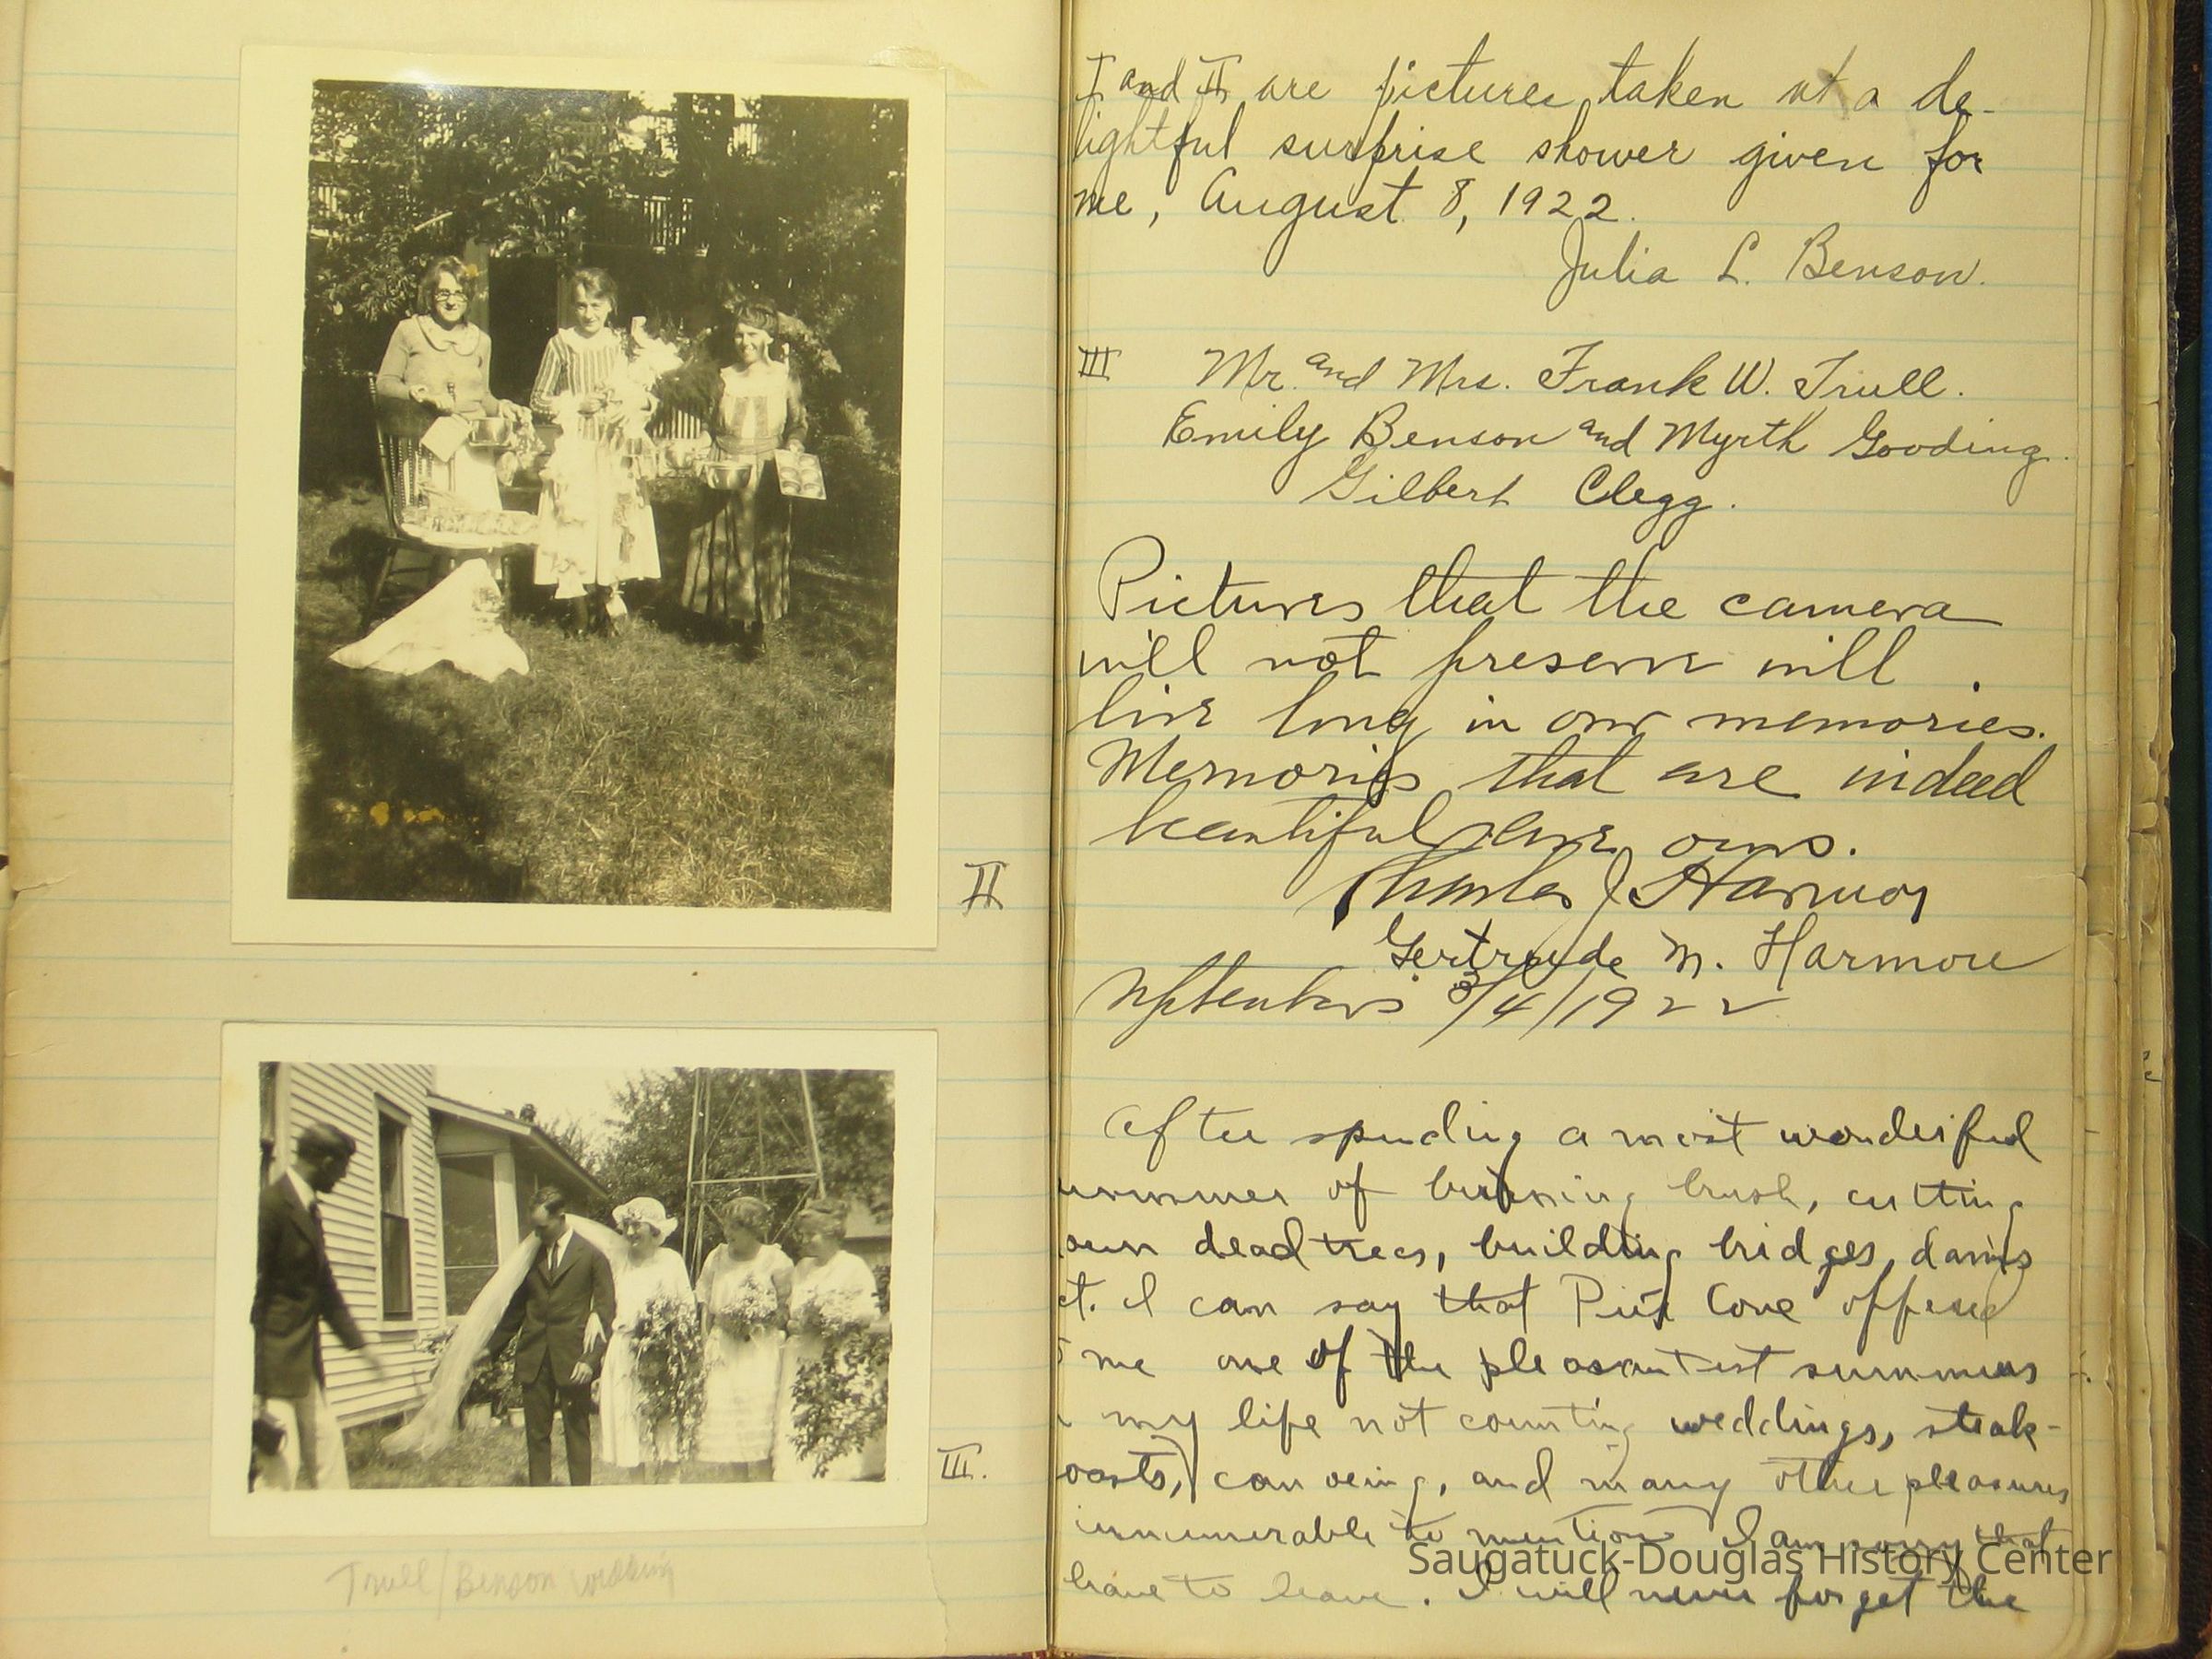 II
III.
Trull/Benson wedding
I and II are pictures taken at a de-
lightful surprise shower given for
me, August 8, 1922.
Julia L. Benson.
III Mr. and Mrs. Frank W. Trull.
Emily Benson and Myrth Gooding.
Gilbert Clegg.
Pictures that the camera
will not preserve will
live long in our memories.
Memories that are indeed
beautiful are ours.
Charles J. Harmon
Gertrude M. Harmon
September 3/4/1922
After spending a most wonderful
ummer of burning brush, cutting
own dead trees, building bridges, dams
ct. I can say that Pier Cove offered
me one of the pleasantest summers
my life not counting weddings, steak-
oasts, canoeing, and many other pleasures
innumerable to mention I am sorry that
have to leave. I will never forget the
Saugatuck-Douglas History Center